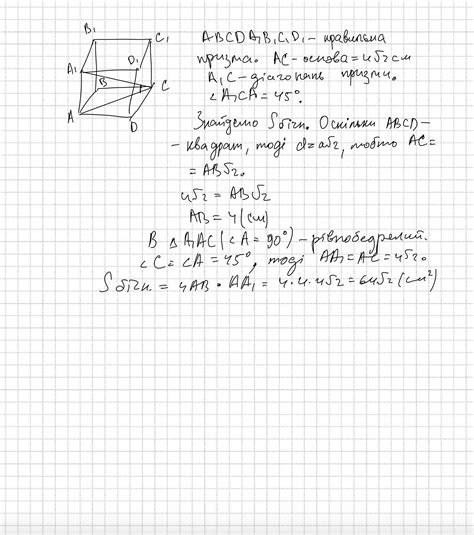 B₁ C₁
A₁ D₁
B C
A D
ABCDA₁B₁C₁D₁ – правильна
призма. AC – основа = 4√2 см
A₁C – діагональ призми.
∠A₁CA = 45°.
Знайдемо Sбічн. Оскільки ABCD –
– квадрат, тоді d = a√2, тобто AC =
= AB√2.
4√2 = AB√2
AB = 4 (см)
В △ A₁AC (∠A = 90°) – рівнобедрений.
∠C = ∠A = 45°, тоді AA₁ = AC = 4√2.
Sбічн. = 4AB • AA₁ = 4 . 4 . 4√2 = 64√2 (см²)